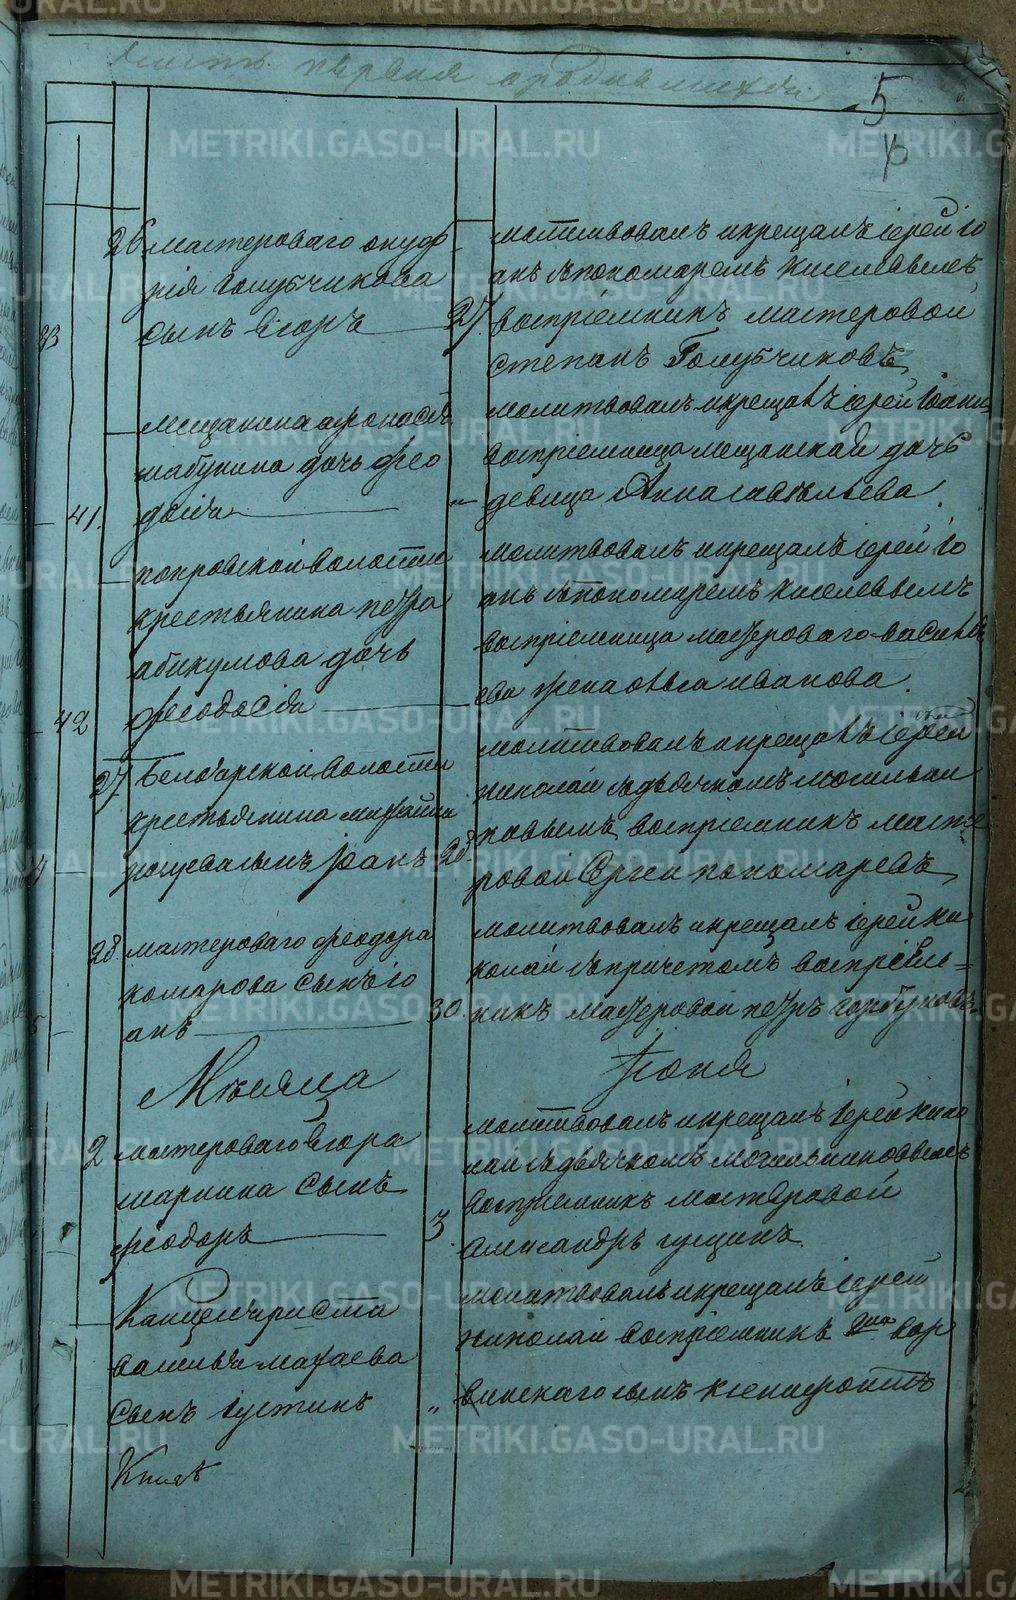 Часть первая о родившихся
5
26 мастероваго онуф
рія голубчикова
сынъ Егоръ
27. молитвовалъ и крещалъ іерей Іо
анъ съ пономаремъ киселевымъ
воспріемникъ мастеровой
степанъ Голубчиковъ
мещанина афонасья
шабунина дочь фео
досія
41.
молитвовалъ и крещалъ іерей Іоанн
воспріемница мещанская дочь
девица Анна савельева
покровской волости
крестьянина петра
абакумова дочь
феодосия
42
молитвовалъ и крещалъ іерей Іо
анъ съ пономаремъ киселевымъ
воспріемница мастероваго василь
ева жена ольга иванова
27 Белоярской волости
крестьянина михайла
сынъ Іоанъ 28
молитвовалъ и крещалъ іерей
николай с дьячкомъ могильни
ковымъ воспріемникъ масте
ровой Сергей пономаревъ
28. мастероваго феодора
комарова сынъ Іо
анъ 30
молитвовалъ и крещалъ іерей ни
колай с причетомъ воспріем=
никъ мастеровой петръ горбуновъ
Месяца Іюня
2 мастероваго Егора
шарнина сынъ
феодоръ 3
молитвовалъ и крещалъ іерей нико
лай с дьячкомъ могильниковымъ
воспріемникъ мастеровой
александръ гущинъ
Канцеляриста
василья махаева
сынъ іустинъ
молитвовалъ и крещалъ іерей
николай воспріемникъ
винскаго сынъ ксенифонтъ
Книгѣ
METRIKI.GASO-URAL.RU